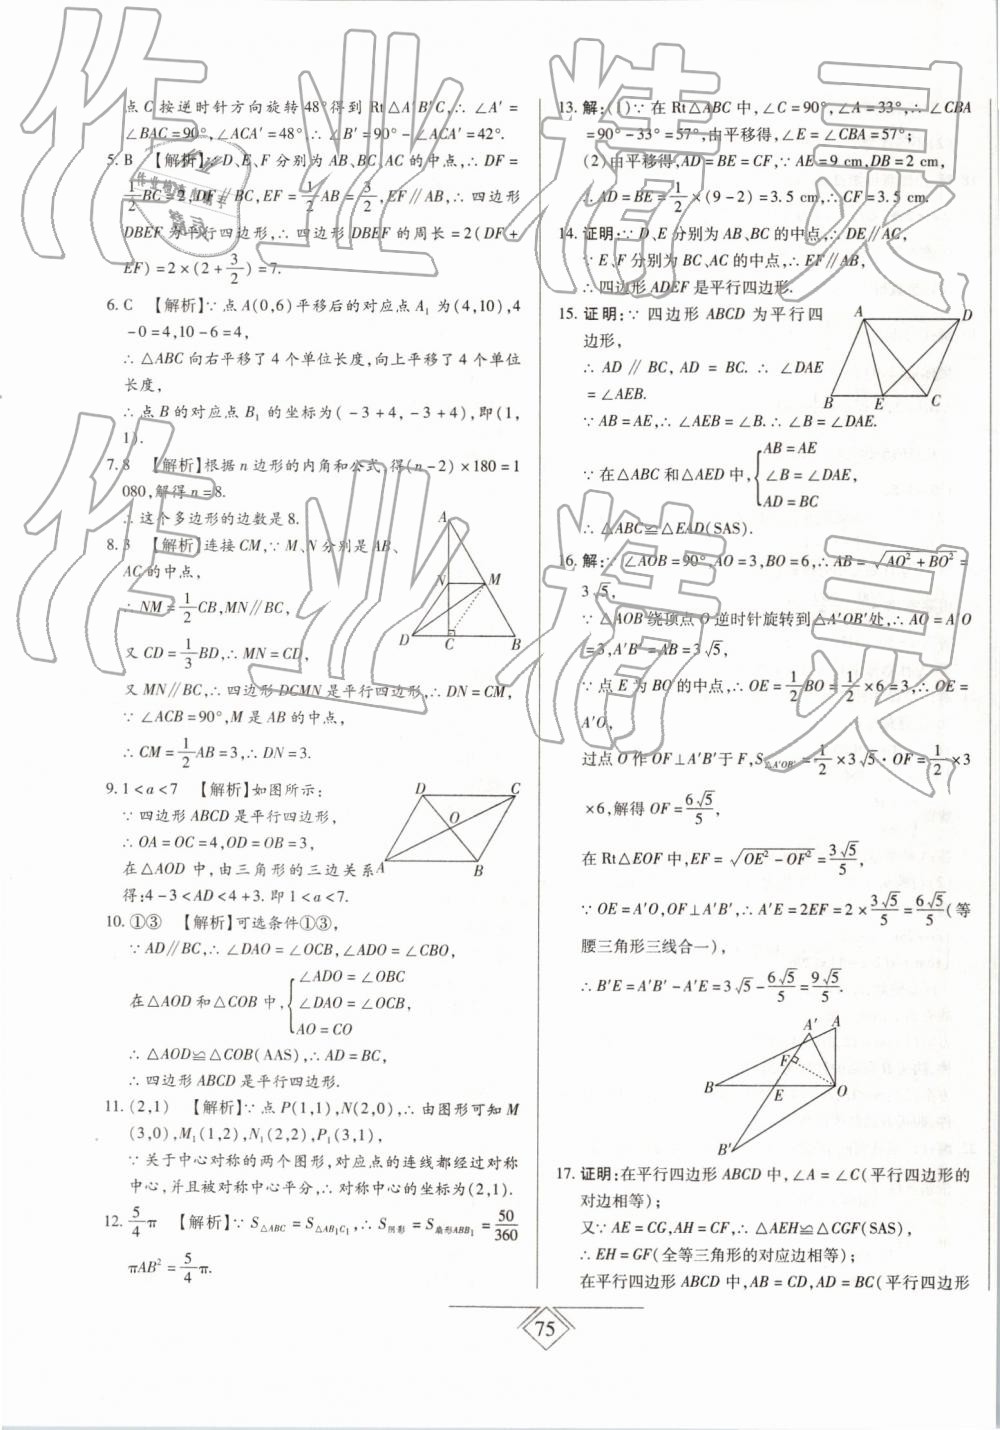 点 C 按逆时针方向旋转 48°得到 Rt△A′B′C,∴ ∠A′ =
∠BAC = 90°,∠ACA′ = 48°∴ ∠B′ = 90° − ∠ACA′ = 42°.
5. B 【解析】∵ D、E、F 分别为 AB、BC、AC 的中点,∴ DF =
1/2 BC = 2,DF∥BC,EF = 1/2 AB = 3/2,EF∥AB,∴ 四边形
DBEF 为平行四边形,∴ 四边形 DBEF 的周长 = 2(DF +
EF) = 2×(2 + 3/2) = 7.
6. C 【解析】∵ 点 A(0,6)平移后的对应点 A₁ 为(4,10),4
−0 = 4,10 − 6 = 4,
∴ △ABC 向右平移了 4 个单位长度,向上平移了 4 个单位
长度,
∴ 点 B 的对应点 B₁ 的坐标为( −3 + 4, −3 + 4),即(1,
1).
7. 8 【解析】根据 n 边形的内角和公式,得(n − 2)×180 = 1
080,解得 n = 8.
∴ 这个多边形的边数是 8.
8. 3 【解析】连接 CM,∵ M、N 分别是 AB、
AC 的中点,
∴ NM = 1/2 CB,MN∥BC,
又 CD = 1/3 BD,∴ MN = CD,
又 MN∥BC,∴ 四边形 DCMN 是平行四边形,∴ DN = CM,
∵ ∠ACB = 90°,M 是 AB 的中点,
∴ CM = 1/2 AB = 3,∴ DN = 3.
A
N
M
D
C
B
9. 1 < a < 7 【解析】如图所示:
∵ 四边形 ABCD 是平行四边形,
∴ OA = OC = 4,OD = OB = 3,
在△AOD 中,由三角形的三边关系
得:4 − 3 < AD < 4 + 3. 即 1 < a < 7.
D
C
O
A
B
10. ①③ 【解析】可选条件①③,
∵ AD∥BC,∴ ∠DAO = ∠OCB,∠ADO = ∠CBO,
∠ADO = ∠OBC
在△AOD 和△COB 中, ∠DAO = ∠OCB,
AO = CO
∴ △AOD≌△COB(AAS),∴ AD = BC,
∴ 四边形 ABCD 是平行四边形.
11. (2,1) 【解析】∵ 点 P(1,1),N(2,0),∴ 由图形可知 M
(3,0),M₁(1,2),N₁(2,2),P₁(3,1),
∵ 关于中心对称的两个图形,对应点的连线都经过对称
中心,并且被对称中心平分,∴ 对称中心的坐标为(2,1).
12. 5/4 π 【解析】∵ S△ABC = S△AB₁C₁,∴ S阴影 = S扇形ABB₁ = 50/360
πAB² = 5/4 π.
13. 解:(1)∵ 在 Rt△ABC 中,∠C = 90°,∠A = 33°,∴ ∠CBA
= 90° − 33° = 57°,由平移得,∠E = ∠CBA = 57°;
(2)由平移得,AD = BE = CF,∵ AE = 9 cm,DB = 2 cm,
∴ AD = BE = 1/2 ×(9 − 2) = 3. 5 cm,∴ CF = 3. 5 cm.
14. 证明:∵ D、E 分别为 AB、BC 的中点,∴ DE∥AC,
∵ E、F 分别为 BC、AC 的中点,∴ EF∥AB,
∴ 四边形 ADEF 是平行四边形.
15. 证明:∵ 四边形 ABCD 为平行四
边形,
∴ AD ∥ BC, AD = BC. ∴ ∠DAE
= ∠AEB.
∵ AB = AE,∴ ∠AEB = ∠B. ∴ ∠B = ∠DAE.
AB = AE
∵ 在△ABC 和△AED 中, ∠B = ∠DAE,
AD = BC
∴ △ABC≌△EAD(SAS).
A
D
B
E
C
16. 解:∵ ∠AOB = 90°,AO = 3,BO = 6,∴ AB = √(AO² + BO²) =
3√5,
∵ △AOB 绕顶点 O 逆时针旋转到△A′OB′处,∴ AO = A′O
= 3,A′B′ = AB = 3√5,
∵ 点 E 为 BO 的中点,∴ OE = 1/2 BO = 1/2 × 6 = 3,∴ OE =
A′O,
过点 O 作 OF⊥A′B′于 F,S△A′OB′ = 1/2 × 3√5 · OF = 1/2 × 3
×6,解得 OF = 6√5/5,
在 Rt△EOF 中,EF = √(OE² − OF²) = 3√5/5,
∵ OE = A′O,OF⊥A′B′,∴ A′E = 2EF = 2 × 3√5/5 = 6√5/5 (等
腰三角形三线合一),
∴ B′E = A′B′ − A′E = 3√5 − 6√5/5 = 9√5/5.
A′
A
F
B
E
O
B′
17. 证明:在平行四边形 ABCD 中,∠A = ∠C(平行四边形的
对边相等);
又∵ AE = CG,AH = CF,∴ △AEH≌△CGF(SAS),
∴ EH = GF(全等三角形的对应边相等);
在平行四边形 ABCD 中,AB = CD,AD = BC(平行四边形
75
作业精灵
作业精灵